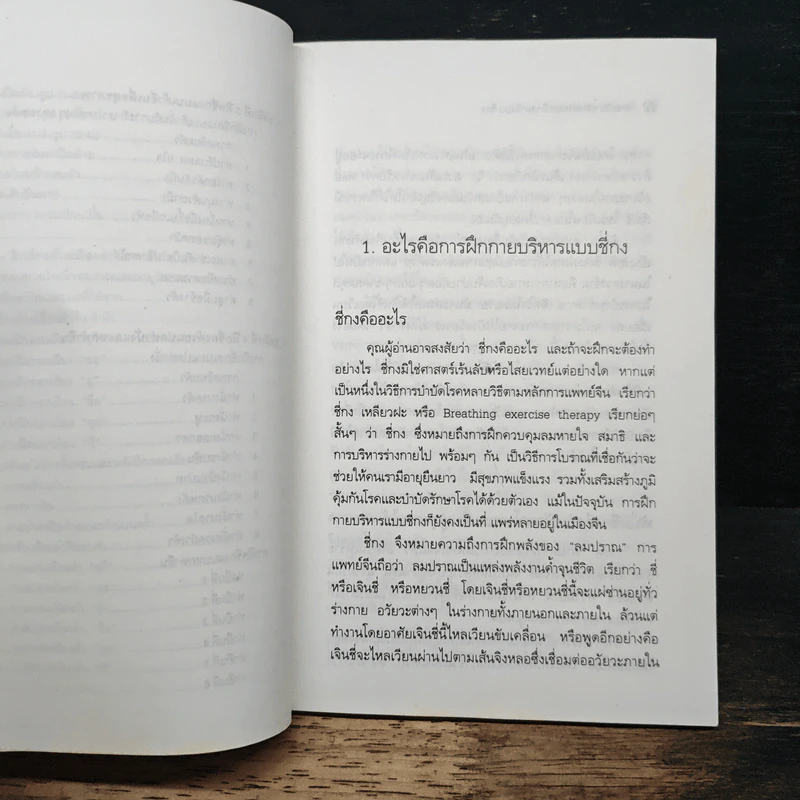 1. อะไรคือการฝึกกายบริหารแบบชี่กง
ชี่กงคืออะไร
คุณผู้อ่านอาจสงสัยว่า ชี่กงคืออะไร และถ้าจะฝึกจะต้องทำ
อย่างไร ชี่กงมิใช่ศาสตร์เร้นลับหรือไสยเวทย์แต่อย่างใด หากแต่
เป็นหนึ่งในวิธีการบำบัดโรคหลายวิธีตามหลักการแพทย์จีน เรียกว่า
ชี่กง เหลียวฝะ หรือ Breathing exercise therapy เรียกย่อๆ
สั้นๆ ว่า ชี่กง ซึ่งหมายถึงการฝึกควบคุมลมหายใจ สมาธิ และ
การบริหารร่างกายไป พร้อมๆ กัน เป็นวิธีการโบราณที่เชื่อกันว่าจะ
ช่วยให้คนเรามีอายุยืนยาว มีสุขภาพแข็งแรง รวมทั้งเสริมสร้างภูมิ
คุ้มกันโรคและบำบัดรักษาโรคได้ด้วยตัวเอง แม้ในปัจจุบัน การฝึก
กายบริหารแบบชี่กงก็ยังคงเป็นที่ แพร่หลายอยู่ในเมืองจีน
ชี่กง จึงหมายความถึงการฝึกพลังของ "ลมปราณ" การ
แพทย์จีนถือว่า ลมปราณเป็นแหล่งพลังงานค้ำจุนชีวิต เรียกว่า ชี่
หรือเจินชี่ หรือหยวนชี่ โดยเจินชี่หรือหยวนชี่นี้จะแผ่ซ่านอยู่ทั่ว
ร่างกาย อวัยวะต่างๆ ในร่างกายทั้งภายนอกและภายใน ล้วนแต่
ทำงานโดยอาศัยเจินชี่นี้ไหลเวียนขับเคลื่อน หรือพูดอีกอย่างคือ
เจินชี่จะไหลเวียนผ่านไปตามเส้นจิงหลอซึ่งเชื่อมต่ออวัยวะภายใน